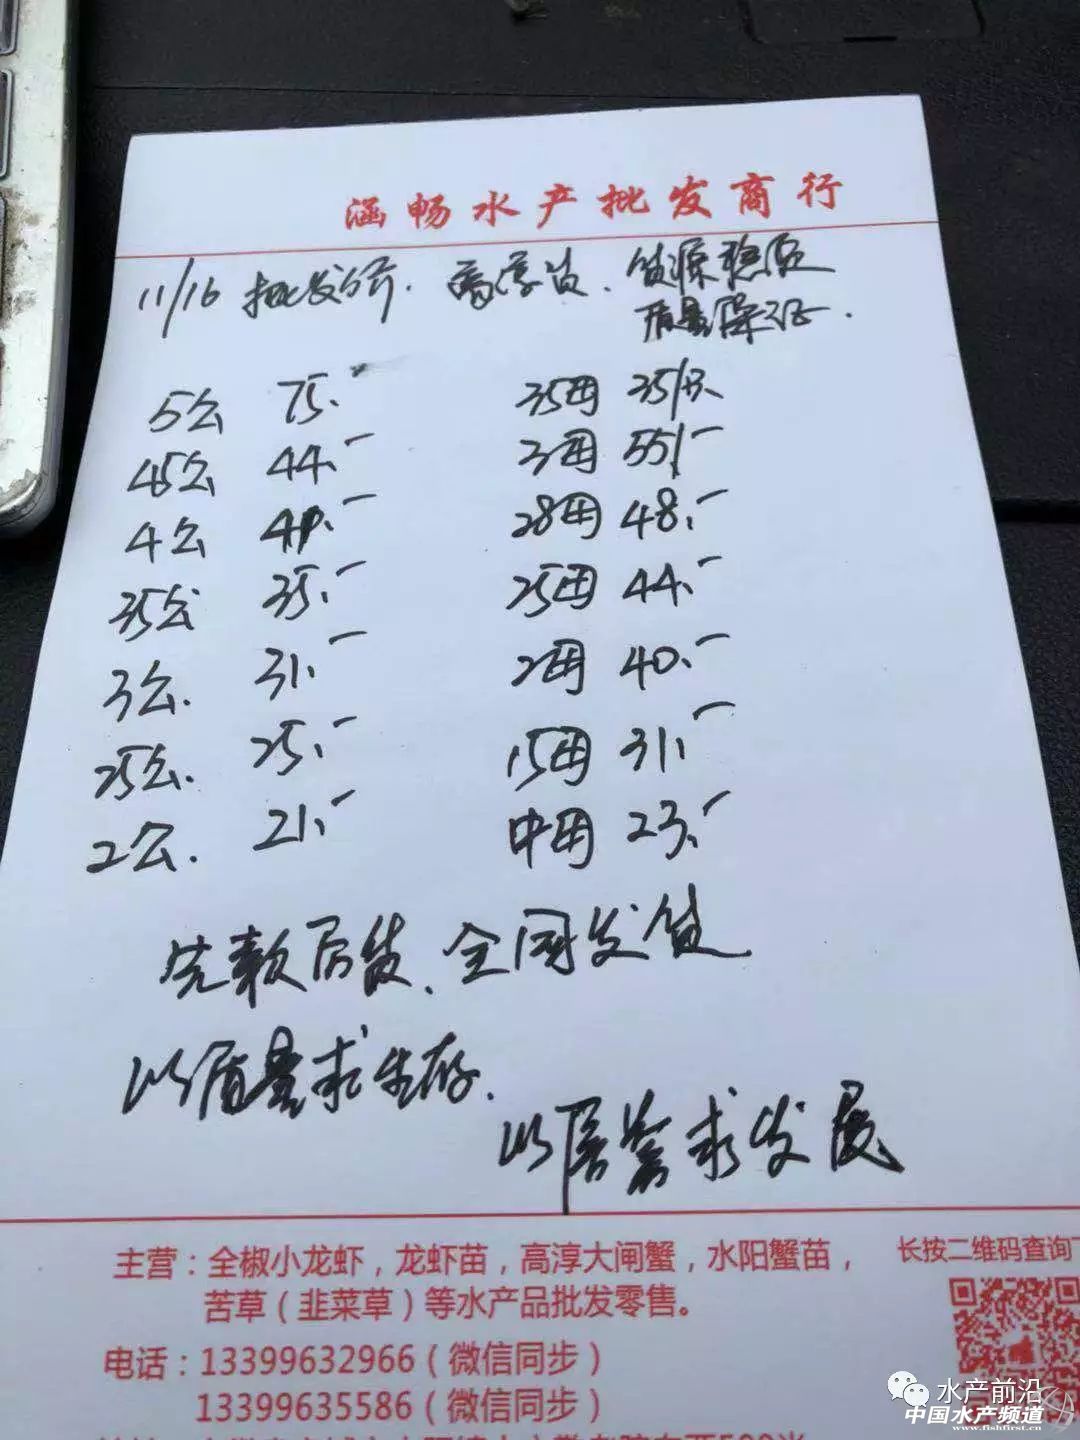 涵畅水产批发商行
11/16 批发价. 高淳蟹. 货源稳定
质量保证.
5公 75.- 35母 35/只
45公 44.- 3母 55/-
4公 41.- 28母 48.-
35公 35.- 25母 44.-
3公. 31.- 2母 40.-
25公. 25.- 15母 31.-
2公. 21.- 中母 23.-
先款后货、全国发货
以质量求生存.
以信誉求发展
主营：全椒小龙虾，龙虾苗，高淳大闸蟹，水阳蟹苗，
苦草（韭菜草）等水产品批发零售。
长按二维码查询
电话：13399632966（微信同步）
13399635586（微信同步）
水产前沿
中国水产频道
www.fishfirst.cn